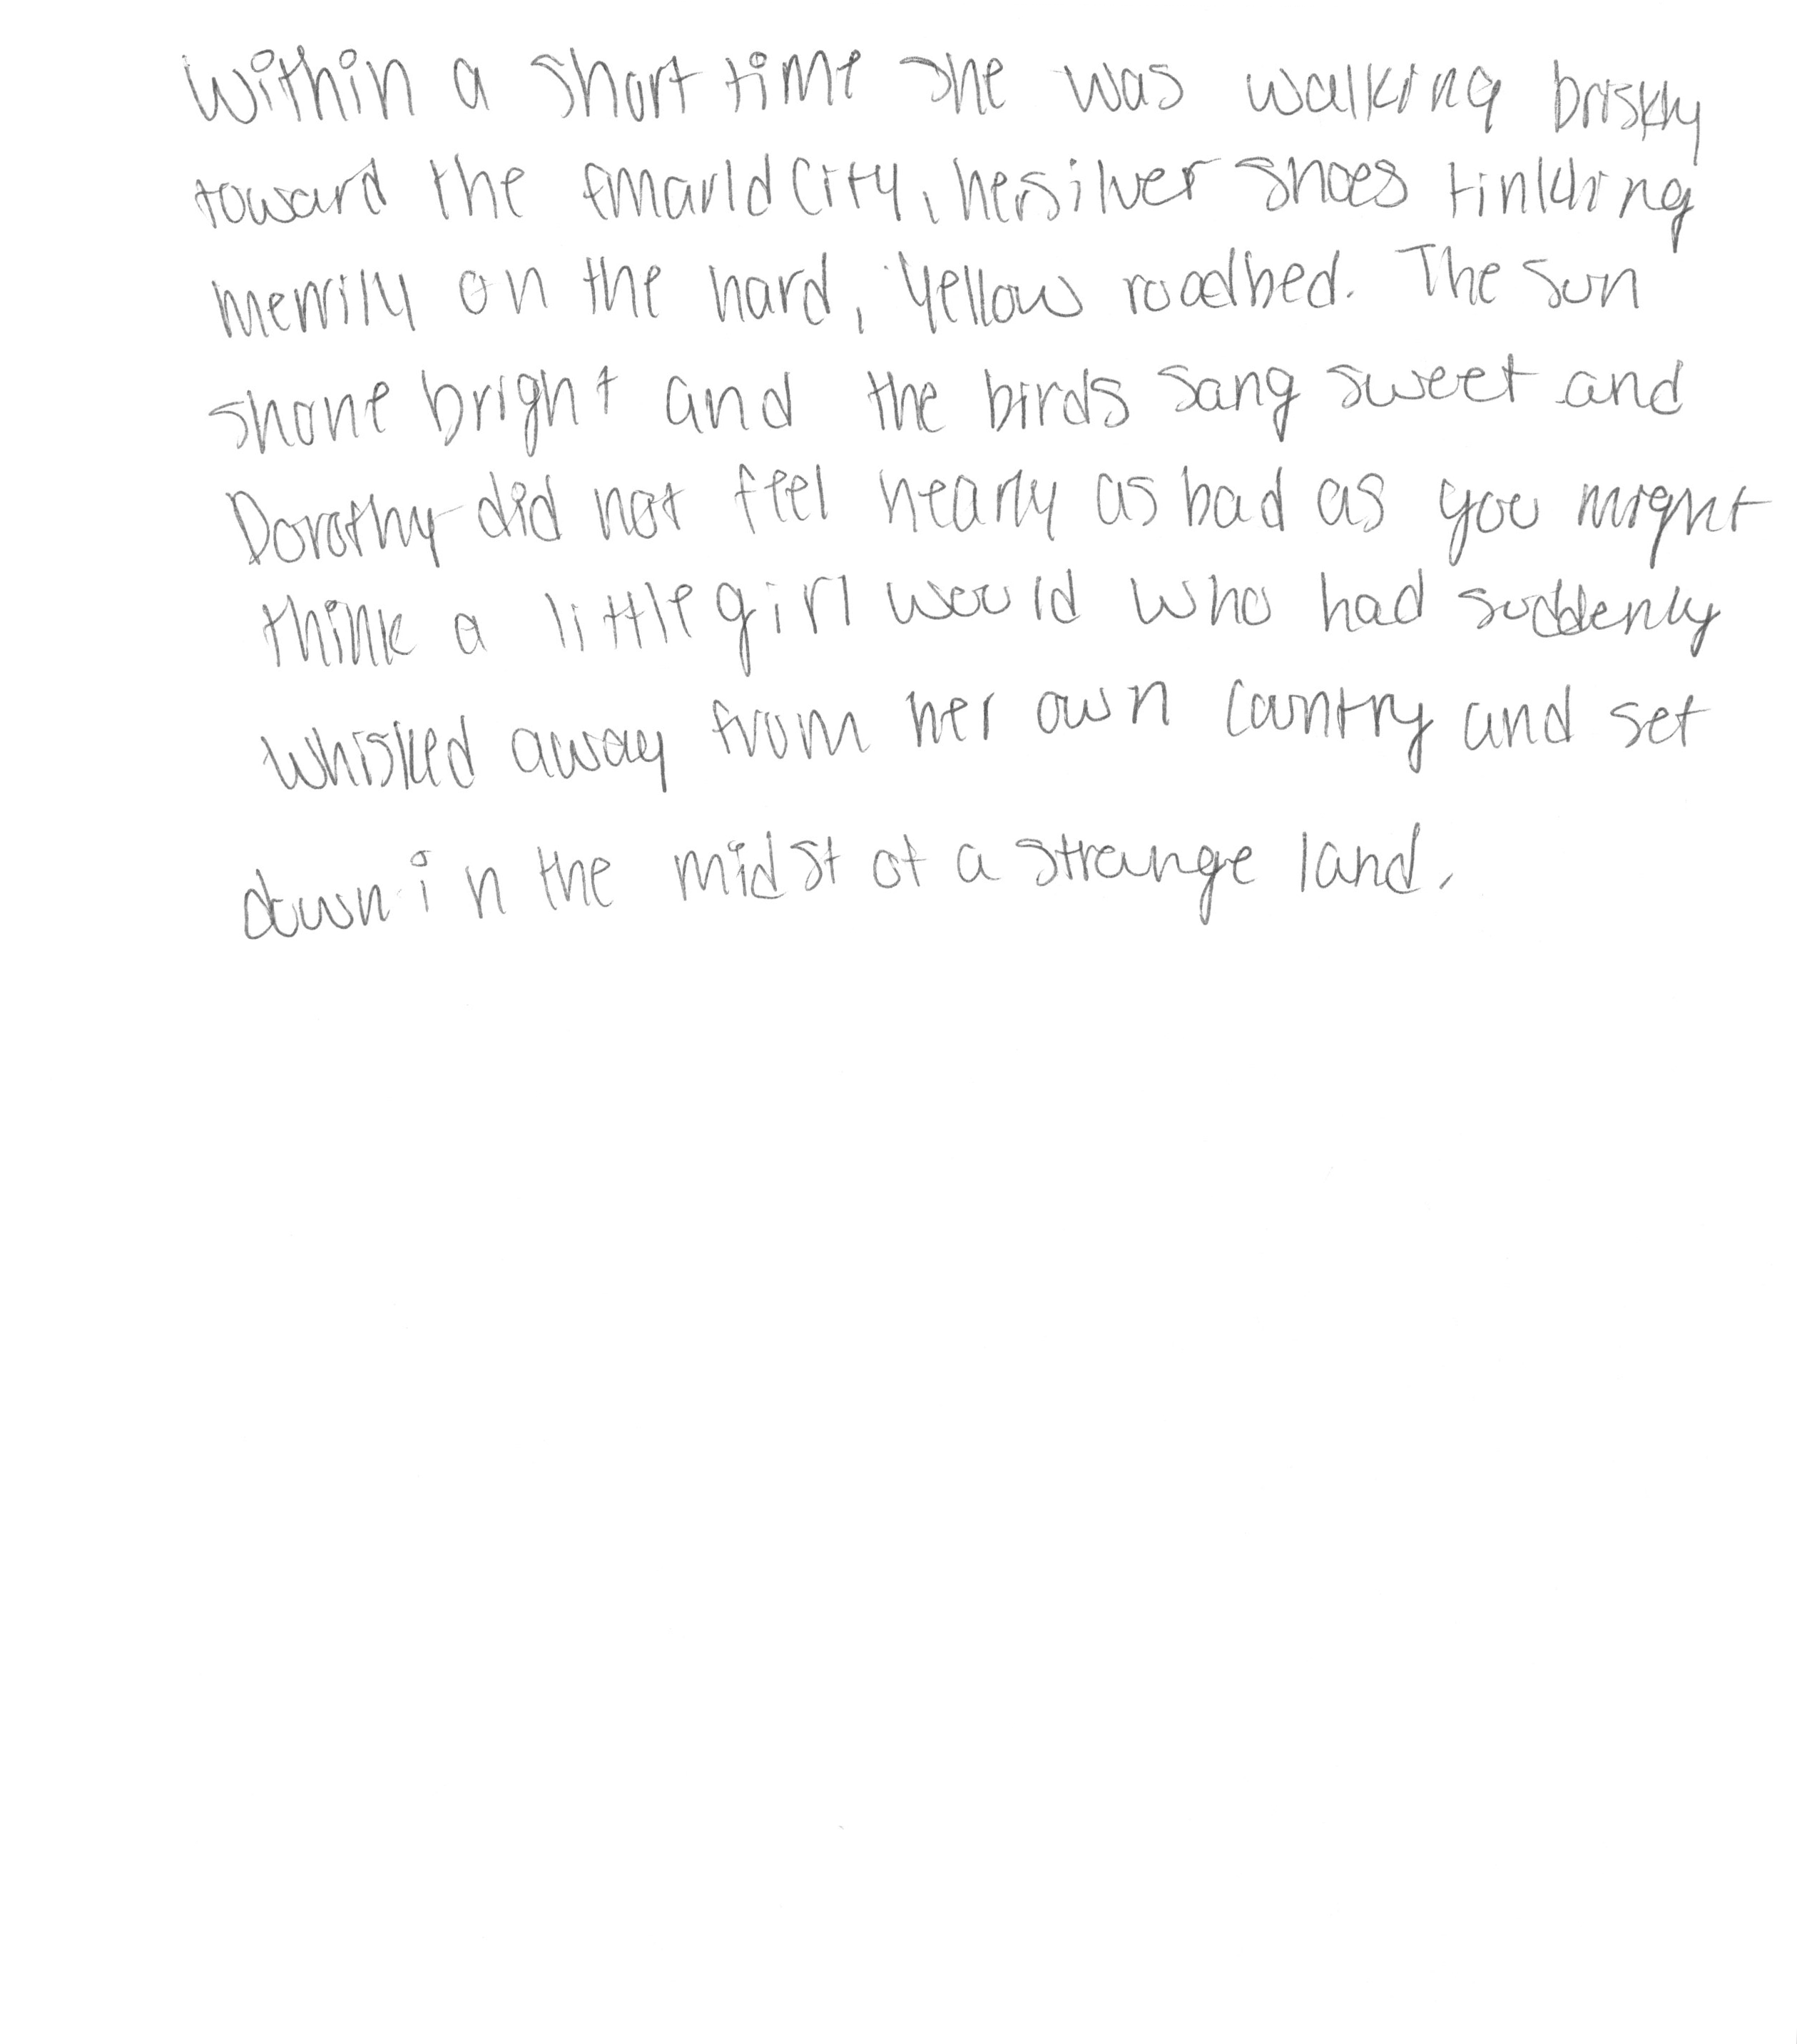 Within a short time she was walking briskly
toward the Emarld City, her silver shoes tinkling
merrily on the hard, Yellow roadbed. The sun
shone bright and the birds sang sweet and
Dorothy did not feel nearly as bad as you might
think a little girl would who had suddenly
whisked away from her own country and set
down in the midst of a strange land.